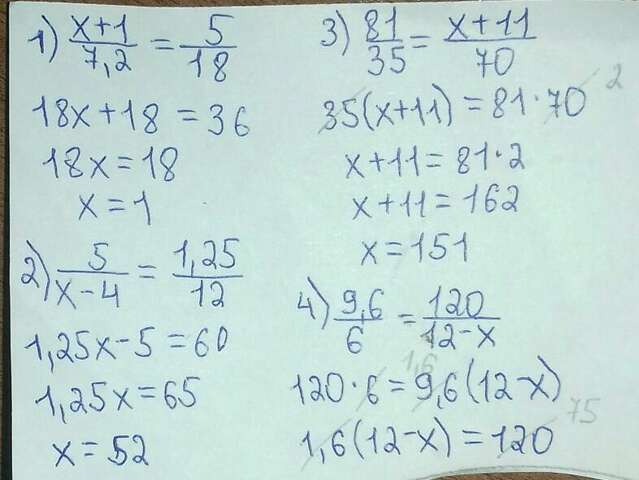 1) x+1/7,2 = 5/18
18x+18=36
18x=18
x=1
2) 5/x-4 = 1,25/12
1,25x-5=60
1,25x=65
x=52
3) 81/35 = x+11/70
35(x+11)=81·70 2
x+11=81·2
x+11=162
x=151
4) 9,6/6 = 120/12-x
1,6
120·6=9,6(12-x)
1,6(12-x)=120 75